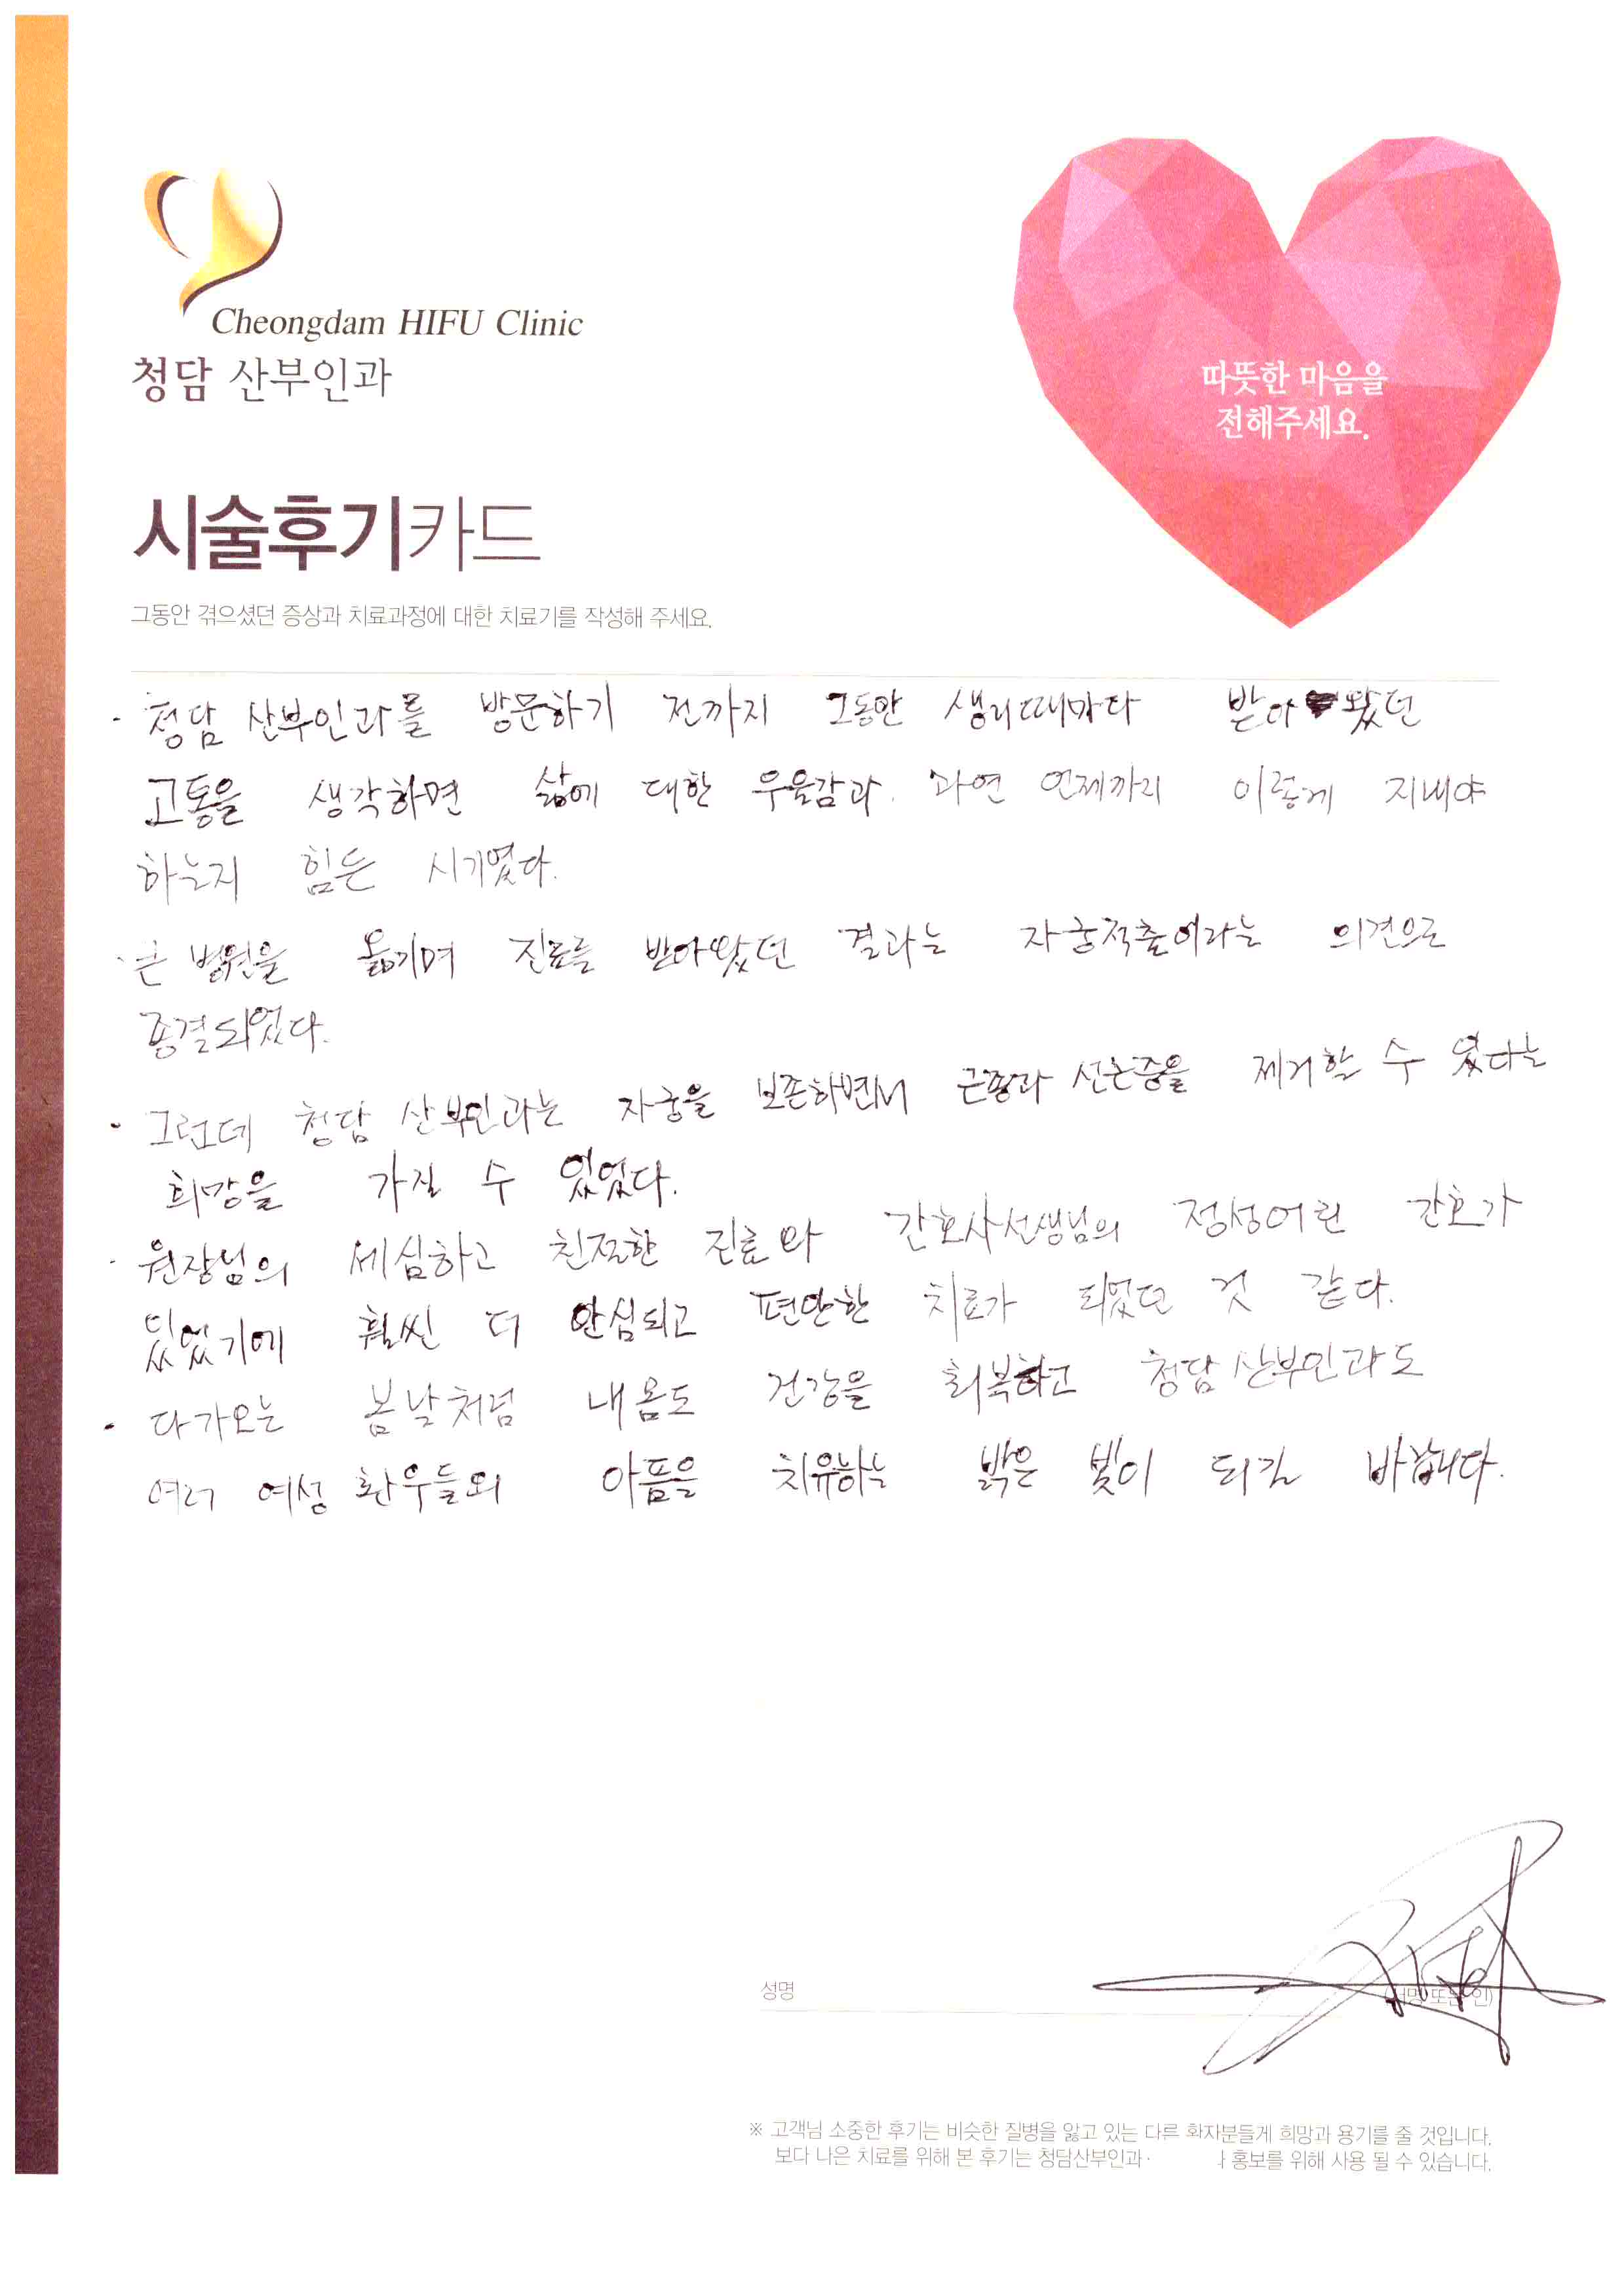 Cheongdam HIFU Clinic
청담 산부인과
따뜻한 마음을
전해주세요.
시술후기카드
그동안 겪으셨던 증상과 치료과정에 대한 치료기를 작성해 주세요.
· 청담 산부인과를 방문하기 전까지 그동안 생리때마다 받아 왔던
고통을 생각하면 삶에 대한 우울감과 과연 언제까지 이렇게 지내야
하는지 힘든 시기였다.
· 큰 병원을 옮기며 진료를 받아왔던 결과는 자궁적출이라는 의견으로
종결되었다.
· 그런데 청담 산부인과는 자궁을 보존하면서 근종과 선근증을 제거할 수 있다는
희망을 가질 수 있었다.
· 원장님의 세심하고 친절한 진료와 간호사선생님의 정성어린 간호가
있었기에 훨씬 더 안심되고 편안한 치료가 되었던 것 같다.
· 다가오는 봄날처럼 내몸도 건강을 회복하고 청담 산부인과도
여러 여성 환우들의 아픔을 치유하는 밝은 빛이 되길 바랍니다.
성명
※ 고객님 소중한 후기는 비슷한 질병을 앓고 있는 다른 환자분들게 희망과 용기를 줄 것입니다.
보다 나은 치료를 위해 본 후기는 청담산부인과 홍보를 위해 사용 될 수 있습니다.